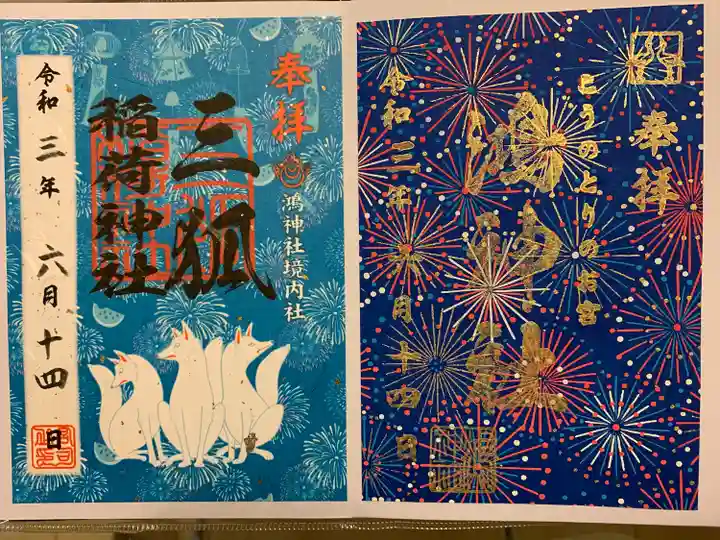 奉拝
鴻神社境内社
三狐
稲荷神社
令和三年六月十四日
奉拝
こうのとりのお宮
鴻神社
令和三年六月十四日